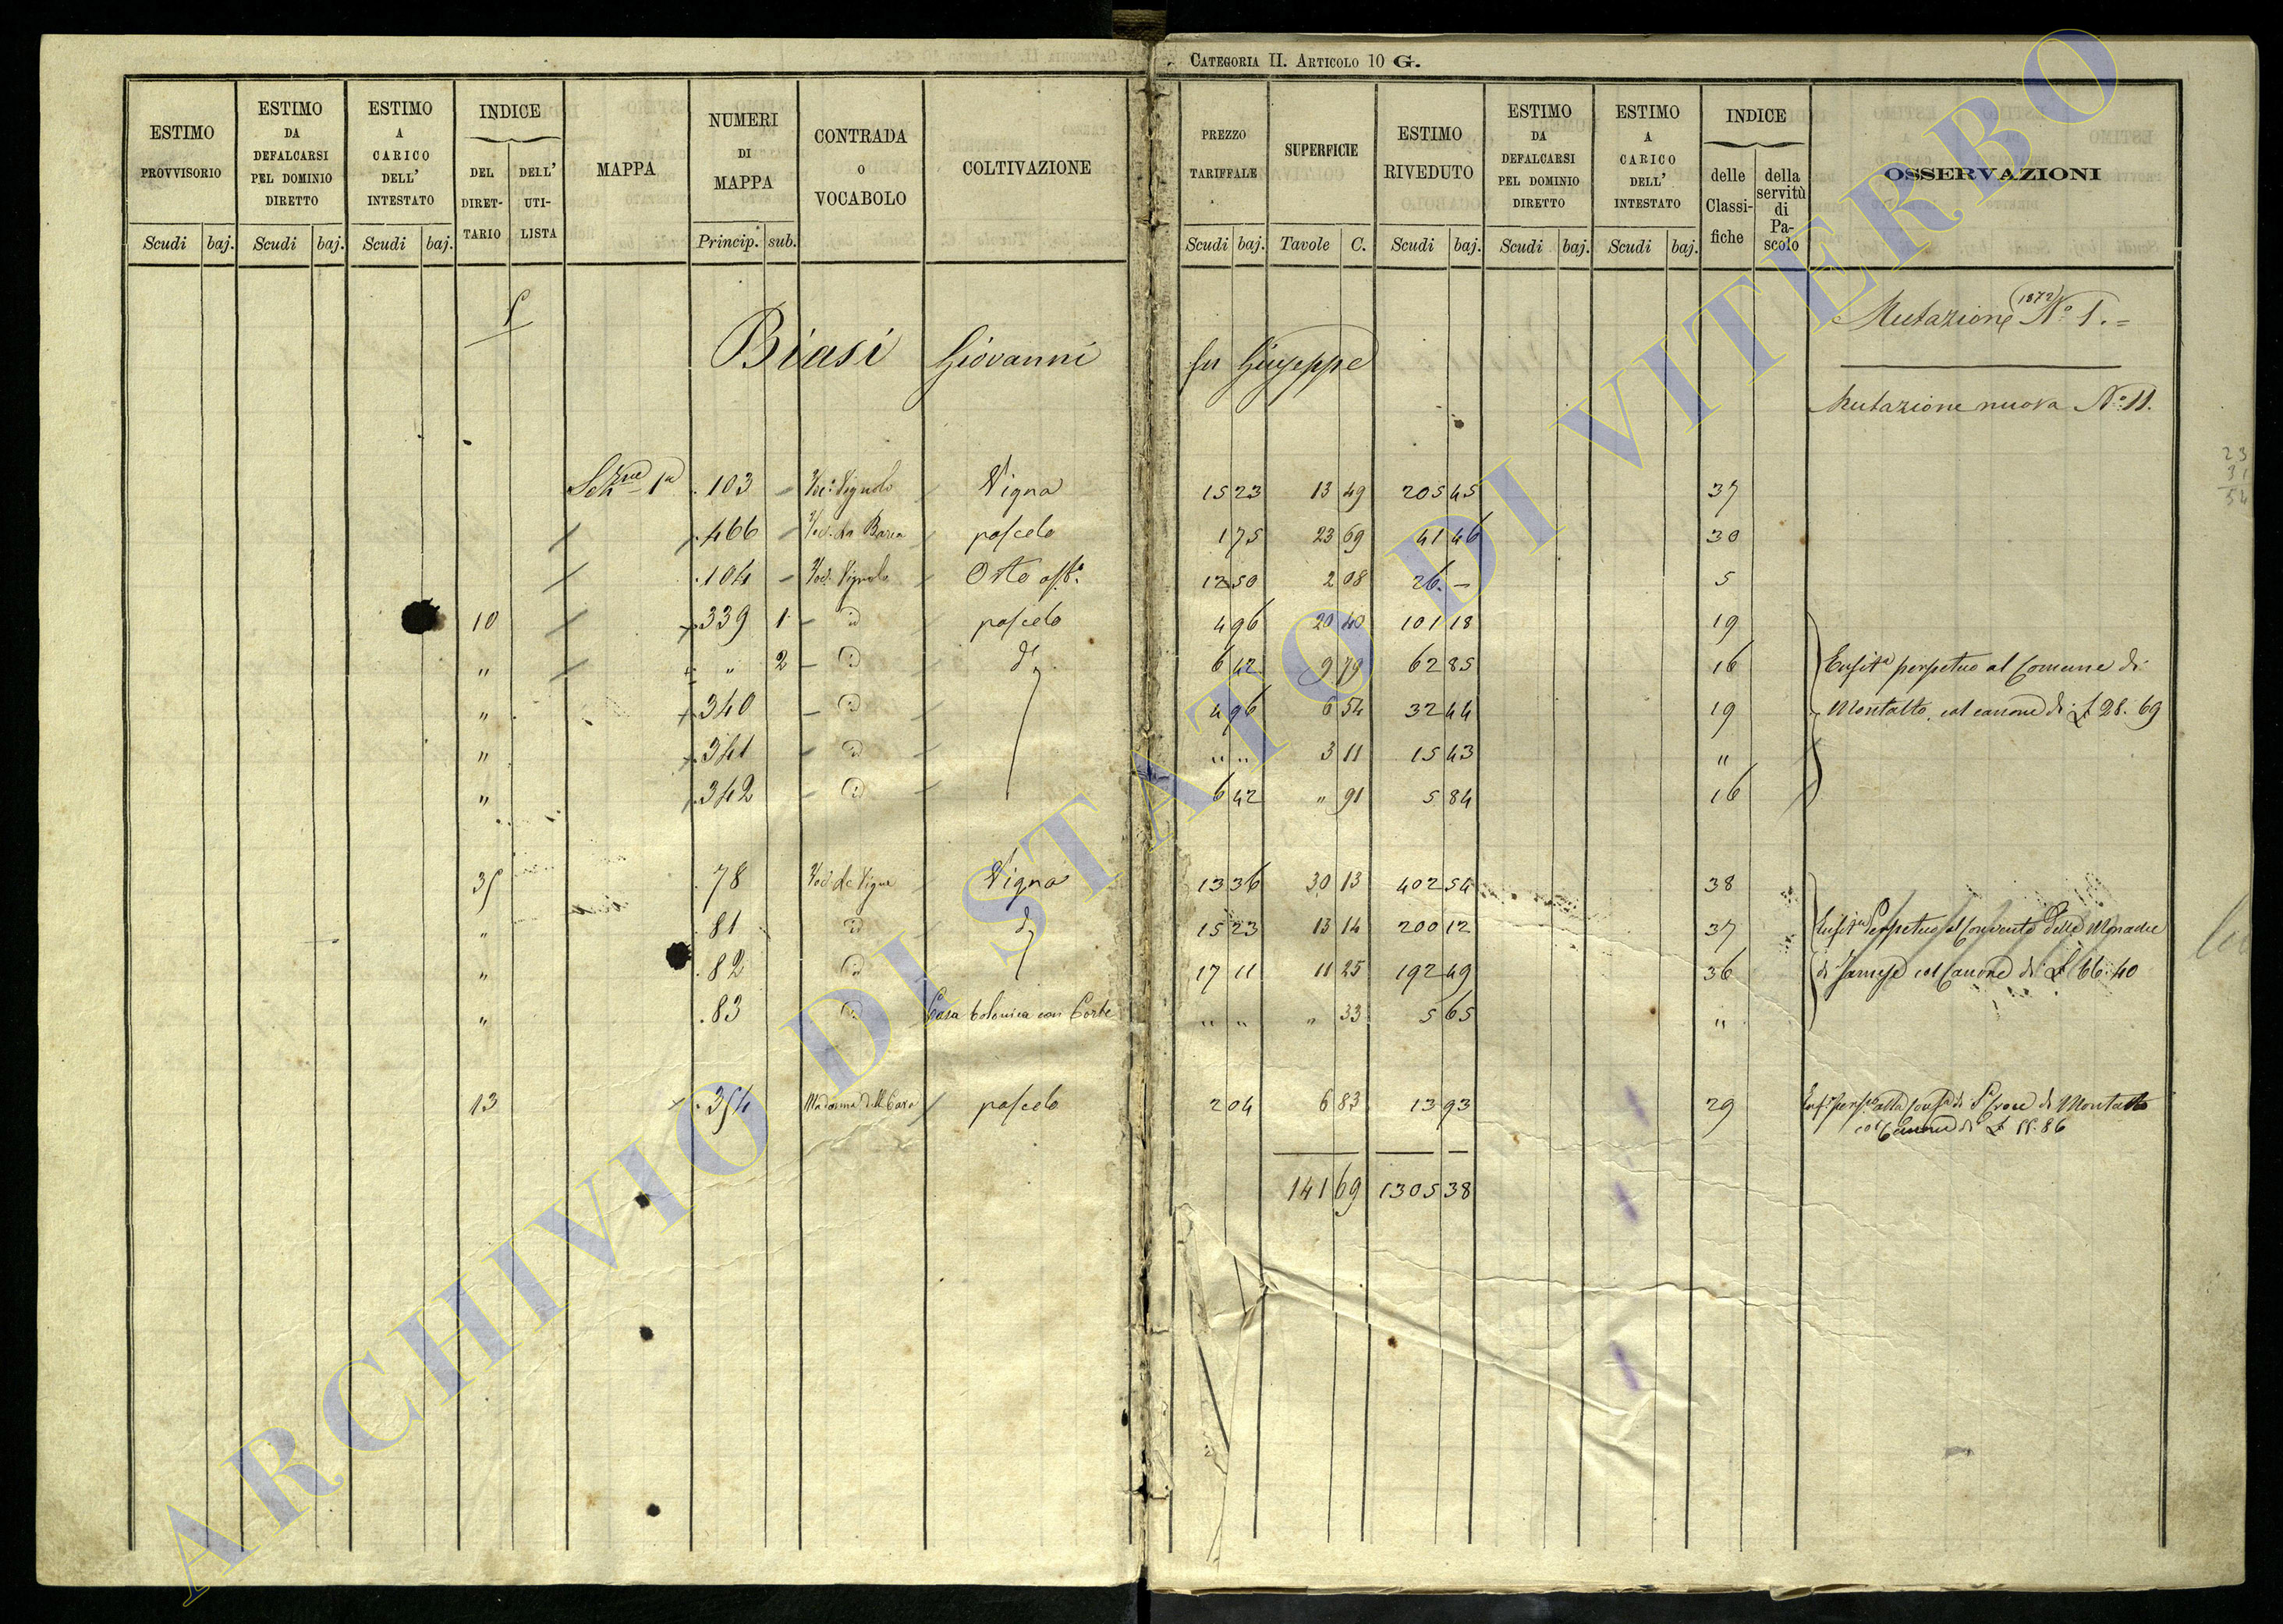 CATEGORIA II. ARTICOLO 10 G.
ESTIMO PROVVISORIO Scudi baj.
ESTIMO DA DEFALCARSI PEL DOMINIO DIRETTO Scudi baj.
ESTIMO A CARICO DELL' INTESTATO Scudi baj.
INDICE DEL DIRET-TARIO DELL' UTI-LISTA
MAPPA
NUMERI DI MAPPA Princip. sub.
CONTRADA O VOCABOLO
COLTIVAZIONE
PREZZO TARIFFALE Scudi baj.
SUPERFICIE Tavole C.
ESTIMO RIVEDUTO Scudi baj.
ESTIMO DA DEFALCARSI PEL DOMINIO DIRETTO Scudi baj.
ESTIMO A CARICO DELL' INTESTATO Scudi baj.
INDICE delle Classi-fiche della servitù di Pa-scolo
OSSERVAZIONI
Mutazione (1872) N° 1. =
Biasi Giovanni fu Giuseppe
Mutazione nuova N° 11.
Sezne 1a 103 Voc. Vignolo Vigna 15 23 13 49 205 45 37
466 Voc. La pascolo 1 75 23 69 41 46 30
104 Voc. Vignolo Orto 12 50 2 08 26 — 5
10 339 1 id pascolo 4 96 20 40 101 18 19
" " 2 id d° 6 42 9 79 62 85 16 Enfita perpetuo al Comune di
" 340 id 4 96 6 54 32 44 19 Montalto, col canone di £ 28. 69
" 341 id " " 3 11 15 43 "
" 342 id 6 42 " 91 5 84 16
35 78 Voc. Le Vigne Vigna 13 36 30 13 402 54 38
" 81 id d° 15 23 13 14 200 12 37 Enfita Perpetuo al Convento delle Monache
" 82 id 17 11 11 25 192 49 36 di Farnese col Canone di £ 66. 40
" 83 id Casa Colonica con Corte " " " 33 5 65 "
13 354 Madonna dell pascolo 2 04 6 83 13 93 29 alla di Sa Croce di Montalto
col Canone di £ 11. 86
141 69 1305 38
23
31
54
ARCHIVIO DI STATO DI VITERBO